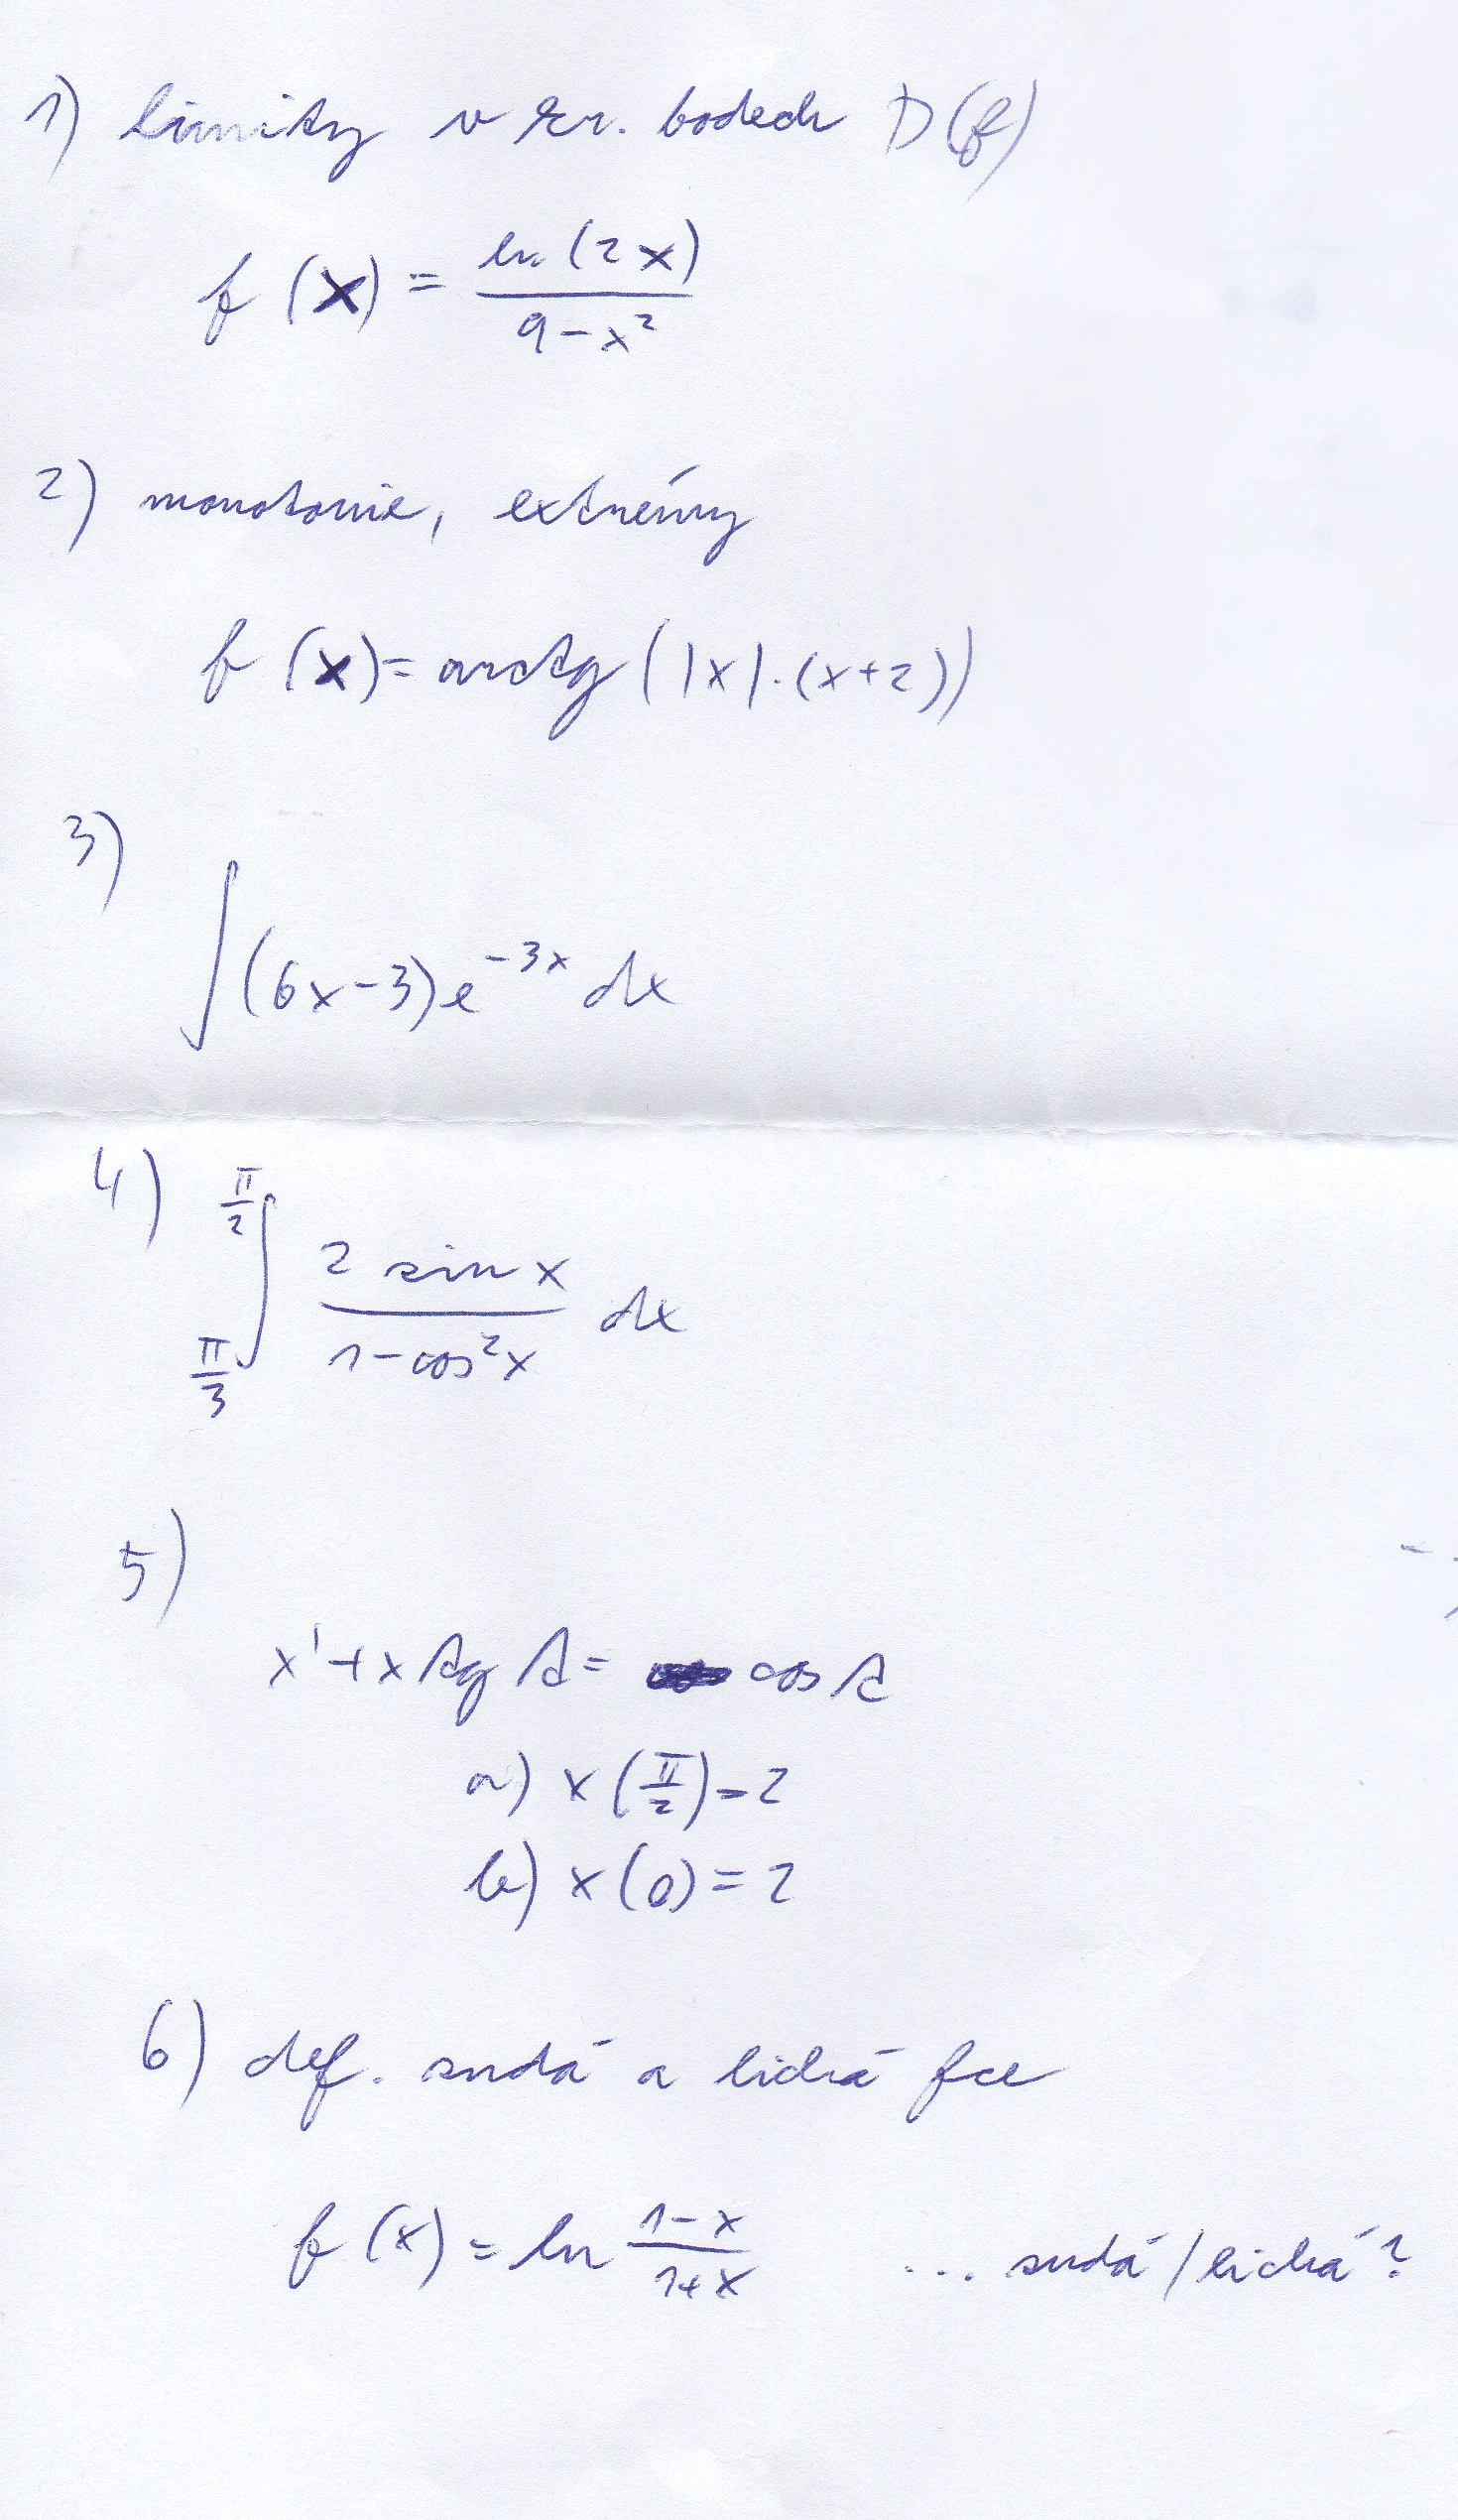 1) limity v kr. bodech D(f)
f(x) = ln(2x) / (9-x²)
2) monotonie, extrémy
f(x) = arctg(|x|·(x+2))
3)
∫(6x-3)e^(-3x) dx
4) ∫_(π/3)^(π/2) (2 sin x)/(1-cos²x) dx
5)
x'+x tg t = cos t
a) x(π/2)=2
b) x(0)=2
6) def. sudá a lichá fce
f(x) = ln (1-x)/(1+x) ... sudá/lichá?